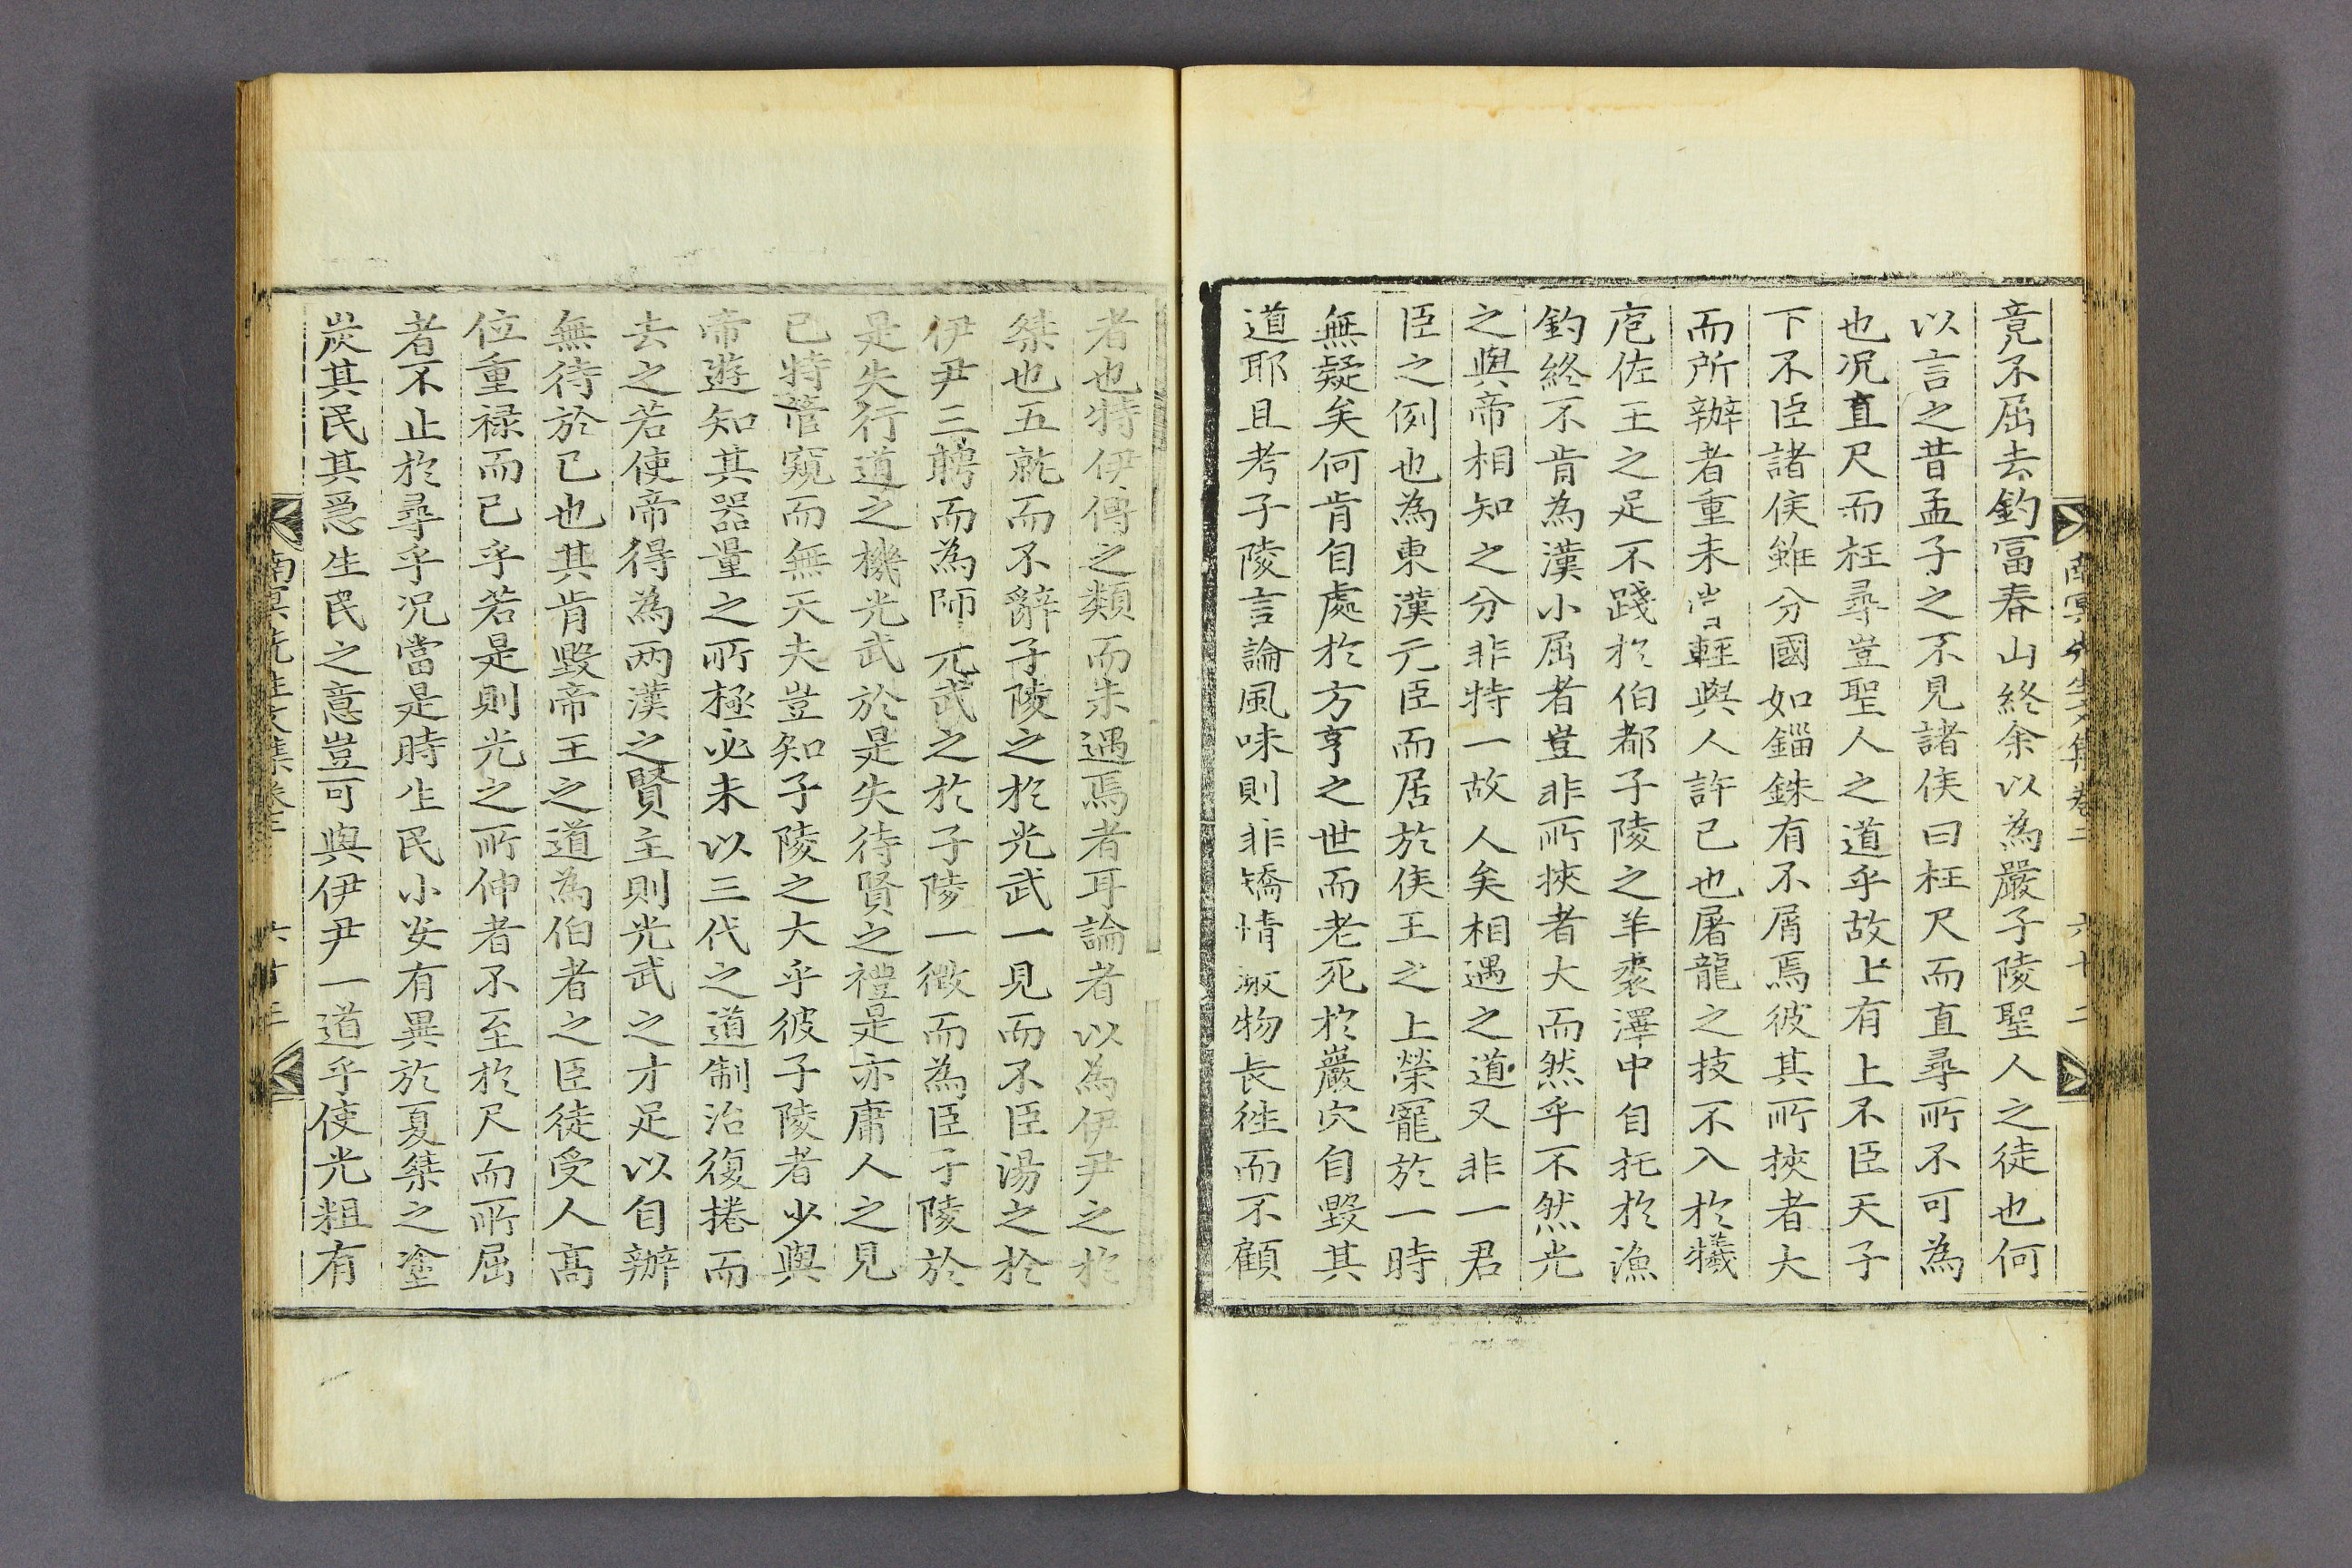 竟不屈去釣富春山終余以為嚴子陵聖人之徒也何
以言之昔孟子之不見諸侯曰枉尺而直尋所不可為
也况直尺而枉尋豈聖人之道乎故上有上不臣天子
下不臣諸侯雖分國如錙銖有不屑焉彼其所挾者大
而所辦者重未嘗輕與人許己也屠龍之技不入於犧
庖佐王之足不踐於伯都子陵之羊裘澤中自托於漁
釣終不肯為漢小屈者豈非所挾者大而然乎不然光
之與帝相知之分非特一故人矣相遇之道又非一君
臣之例也為東漢元臣而居於侯王之上榮寵於一時
無疑矣何肯自處於方亨之世而老死於巖穴自毀其
道耶且考子陵言論風味則非矯情渺物長徃而不顧
南冥先生文集卷二 六十二
者也特伊傅之類而未遇焉者耳論者以為伊尹之於
桀也五就而不辭子陵之於光武一見而不臣湯之於
伊尹三聘而為師光武之於子陵一徵而為臣子陵於
是失行道之機光武於是失待賢之禮是亦庸人之見
已特管窺而無天夫豈知子陵之大乎彼子陵者少與
帝遊知其器量之所極必未以三代之道制治復捲而
去之若使帝得為两漢之賢主則光武之才足以自辦
無待於己也其肯毀帝王之道為伯者之臣徒受人高
位重禄而已乎若是則光之所伸者不至於尺而所屈
者不止於尋乎况當是時生民小安有異於夏桀之塗
炭其民其忍生民之意豈可與伊尹一道乎使光粗有
南冥先生文集卷二 六十三